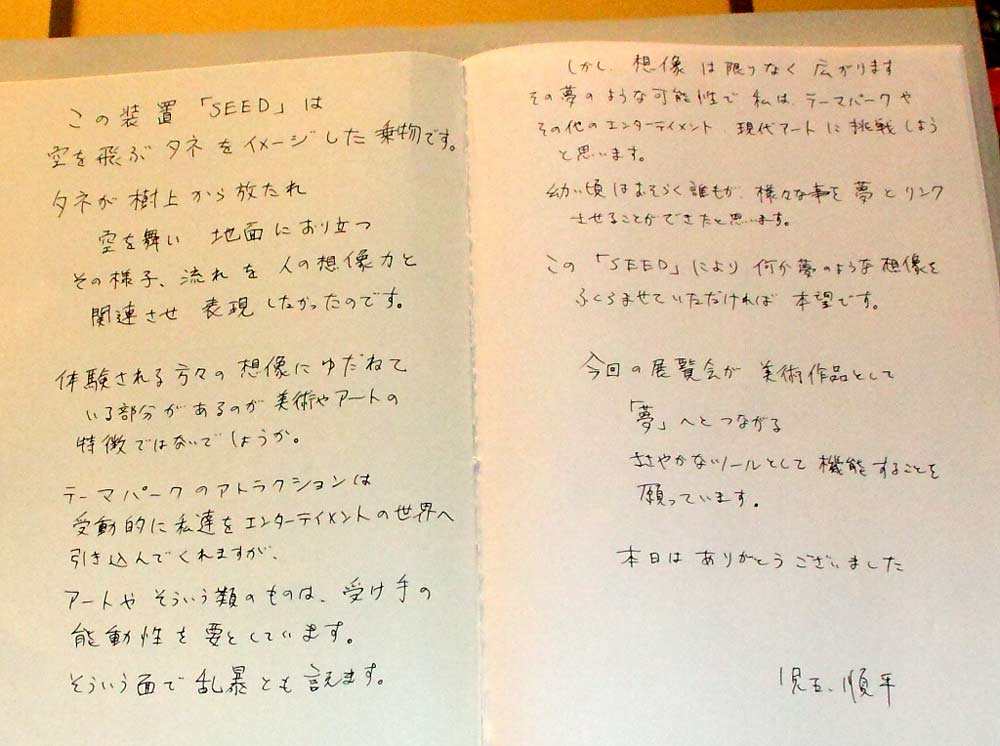 この装置「SEED」は
空を飛ぶタネをイメージした乗物です。
タネが樹上から放たれ
空を舞い 地面におり立つ
その様子、流れを 人の想像力と
関連させ 表現したかったのです。
体験される方々の想像にゆだねて
いる部分があるのが美術やアートの
特徴ではないでしょうか。
テーマパークのアトラクションは
受動的に私達をエンターテイメントの世界へ
引き込んでくれますが、
アートやそういう類のものは、受け手の
能動性を要としています。
そういう面で乱暴とも言えます。
しかし、想像は限りなく広がります
その夢のような可能性で私は、テーマパークや
その他のエンターテイメント 現代アートに挑戦しよう
と思います。
幼い頃はおそらく誰もが、様々な事を夢とリンク
させることができたと思います。
この「SEED」により何か夢のような想像を
ふくらませていただければ 本望です。
今回の展覧会が 美術作品として
「夢」へとつながる
ささやかなツールとして機能することを
願っています。
本日はありがとうございました
児玉 順平